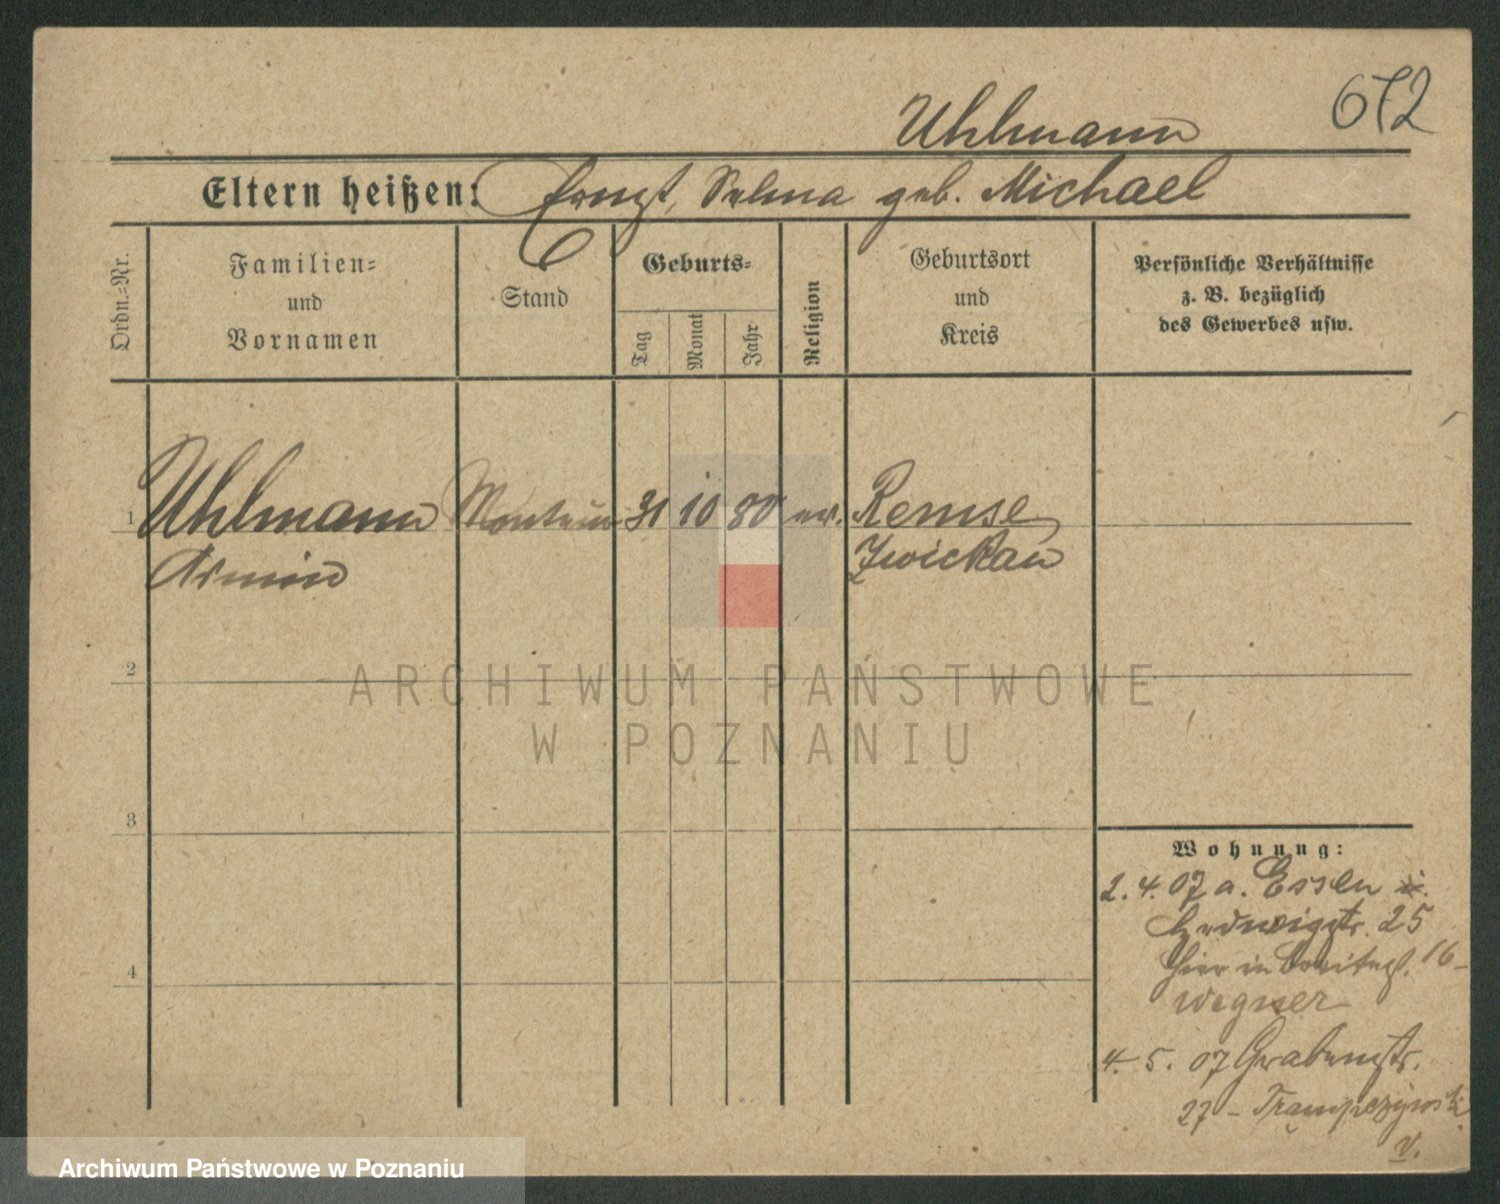 672
Uhlmann
Eltern heißen: Ernst, Selma geb. Michael
Ordn.-Nr.
Familien-
und
Vornamen
Stand
Geburts-
Tag
Monat
Jahr
Religion
Geburtsort
und
Kreis
Persönliche Verhältnisse
z. B. bezüglich
des Gewerbes usw.
1
Uhlmann Monteur 31 10 80 ev. Remse
Armin Zwickau
2
3
4
Wohnung:
2. 4. 07 a. Essen
Hedwigstr. 25
hier in Breitestr. 16-
Wegner
4. 5. 07 Grabenstr.
27 - Trąmpczyński
V.
ARCHIWUM PAŃSTWOWE
W POZNANIU
Archiwum Państwowe w Poznaniu